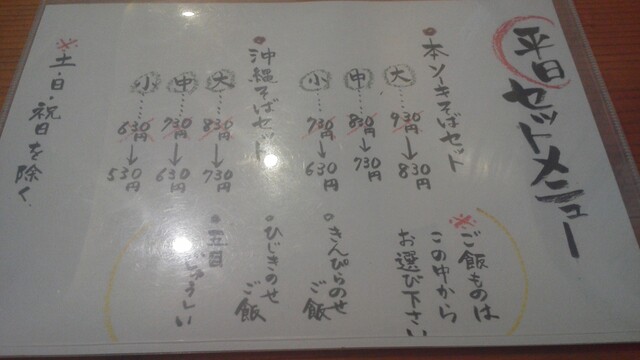 平日セットメニュー
• 本ソーキそばセット
大……930円→830円
中……830円→730円
小……730円→630円
• 沖縄そばセット
大……830円→730円
中……730円→630円
小……630円→530円
※ご飯ものは
この中から
お選び下さい
• きんぴらのせ
ご飯
• ひじきのせ
ご飯
• 五目
じゅうしい
※土・日・祝日を除く